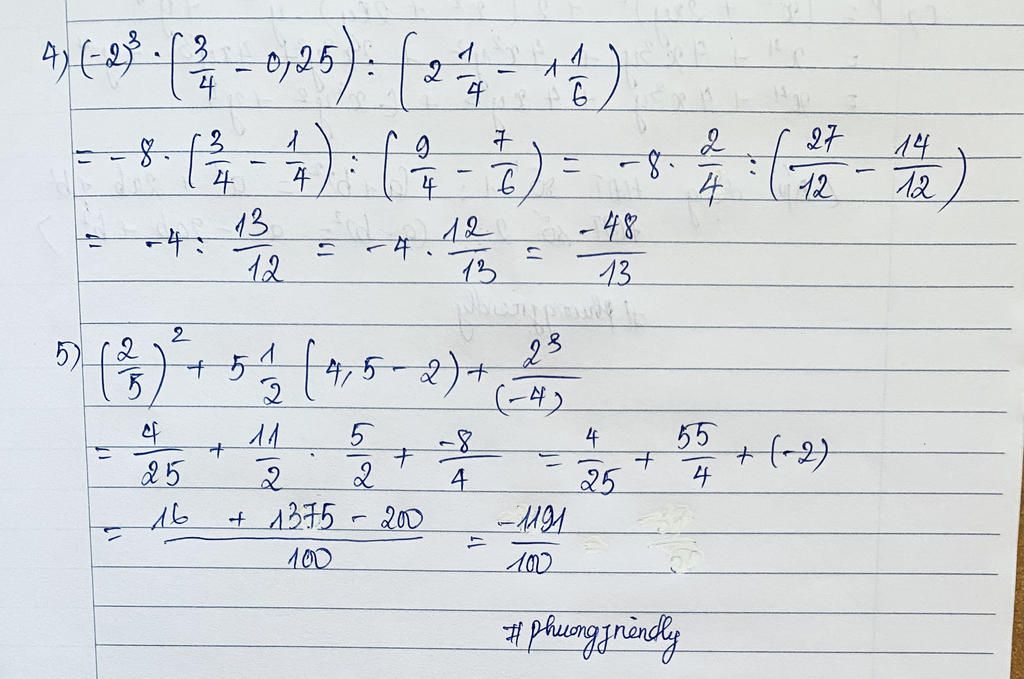 4) (-2)³ · (3/4 - 0,25) : (2 1/4 - 1 1/6)
= -8 · (3/4 - 1/4) : (9/4 - 7/6) = -8 · 2/4 : (27/12 - 14/12)
= -4 : 13/12 = -4 · 12/13 = -48/13
5) (2/5)² + 5 1/2 (4,5 - 2) + 2³/(-4)
= 4/25 + 11/2 · 5/2 + -8/4 = 4/25 + 55/4 + (-2)
= 16 + 1375 - 200/100 = -1191/100
# phuongfriendly